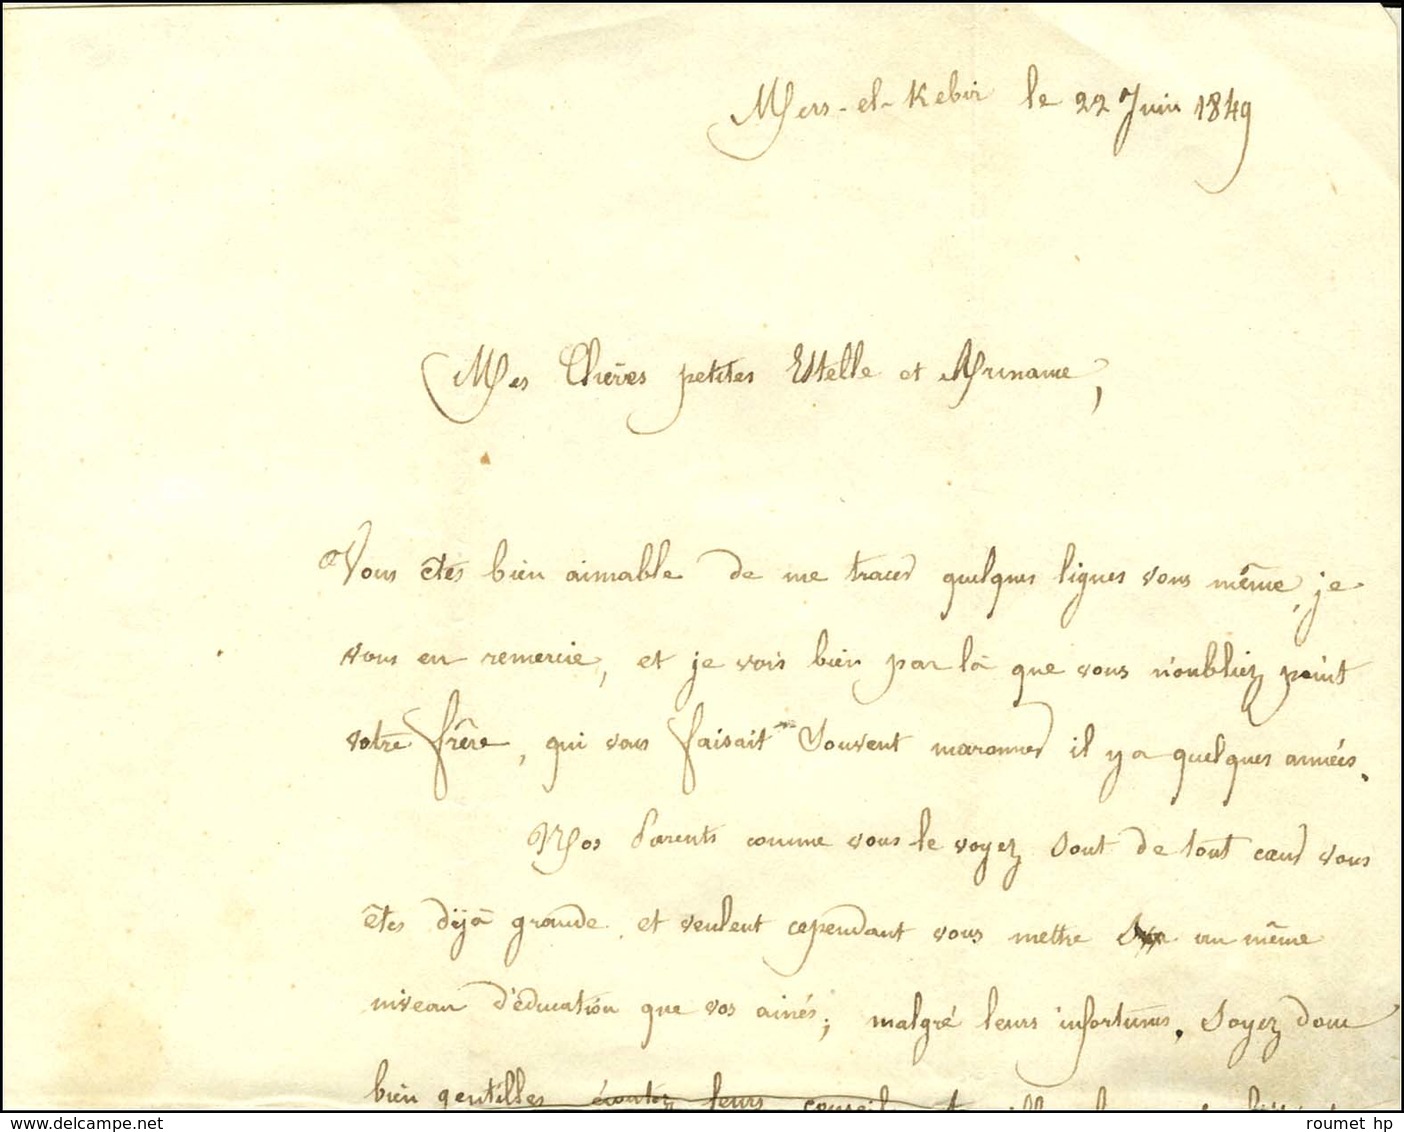 Mers-el-Kebir le 22 Juin 1849
Mes Chères petites Estelle et
Vous êtes bien aimable de me tracer quelques lignes vous même, je
vous en remercie, et je vois bien par là que vous n'oubliez point
votre frère, qui vous faisait souvent maronner il y a quelques années.
Nos Parents comme vous le voyez sont de tout cœur vous
êtes déjà grande, et veulent cependant vous mettre au même
niveau d'éducation que vos ainés; malgré leurs infortunes. Soyez donc
bien gentilles écoutez leurs conseils
delcampe.net
roumet hp